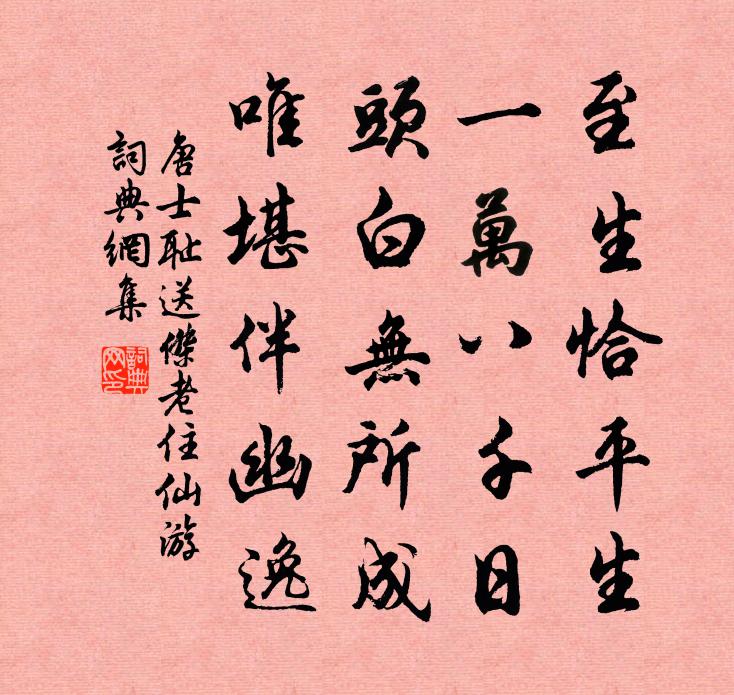 至生恰平生
一萬八千日
頭白無所成
唯堪伴幽逸
唐士恥送傑老住仙游
詞典網集
詞典網印